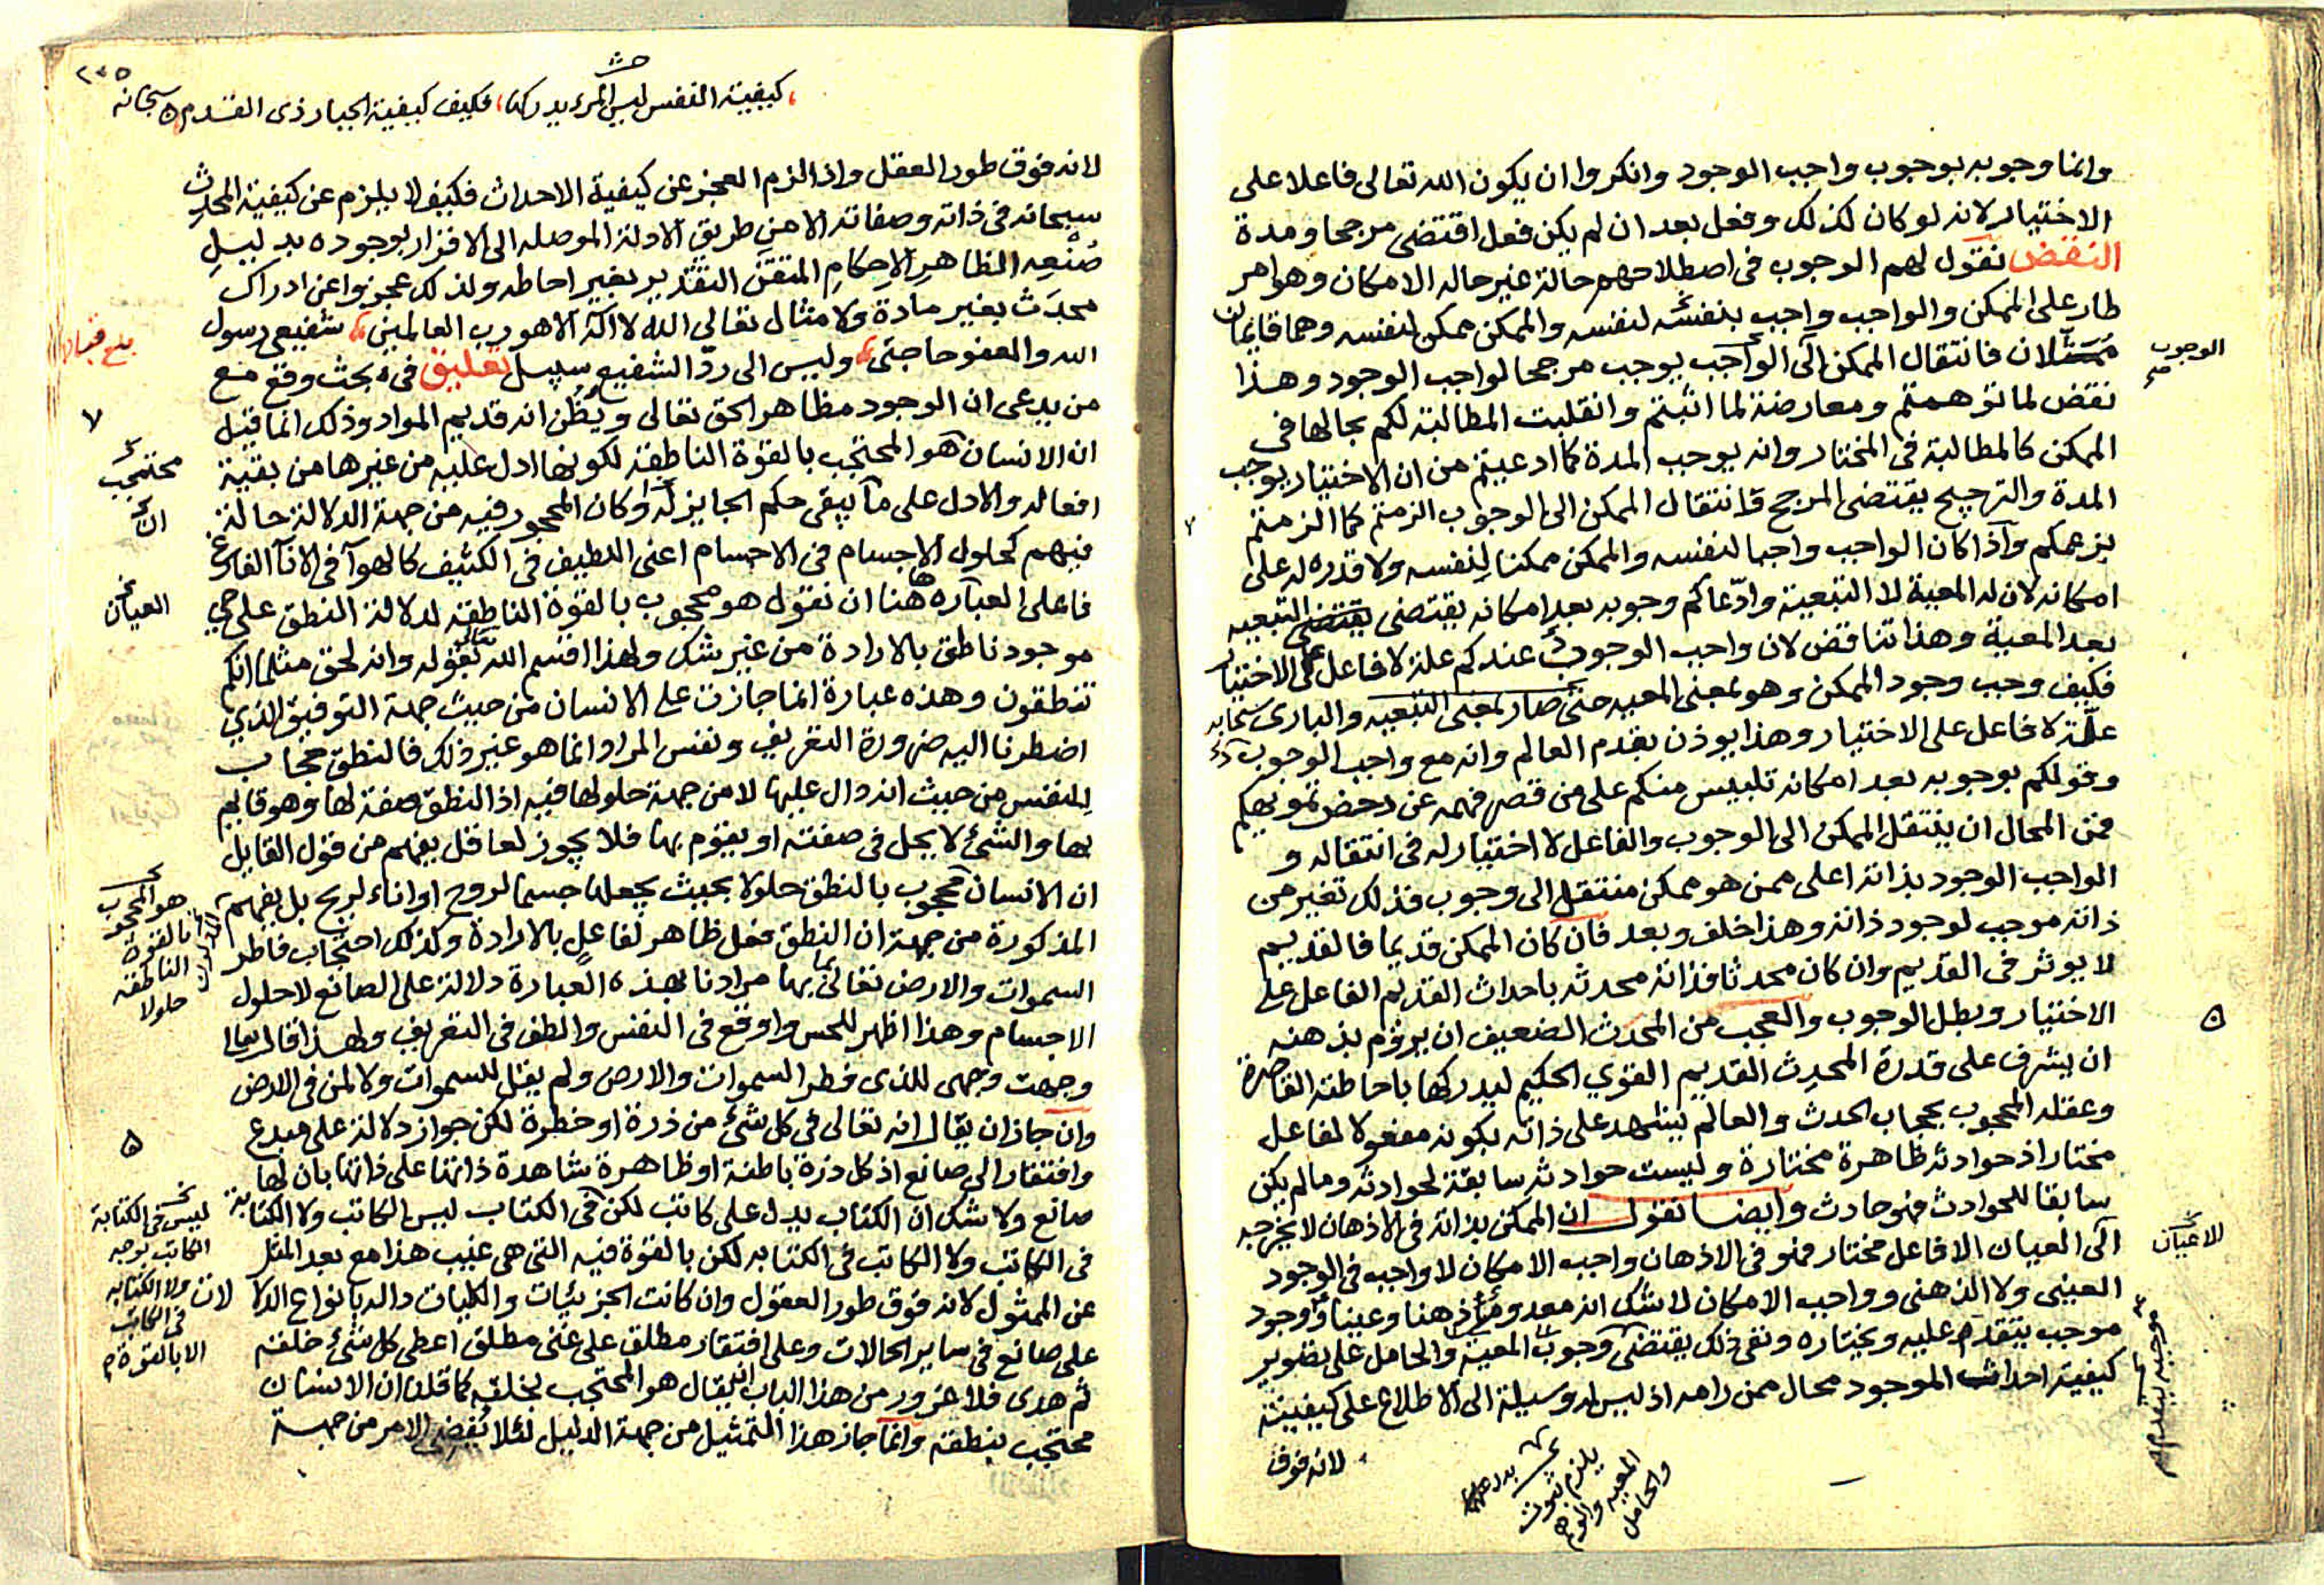 وانما وجوبه بوجوب واجب الوجود وانكروا ان يكون الله تعالى فاعلا على
الاختيار لانه لو كان كذلك وفعل بعد ان لم يكن فعل اقتضى مرجحا ومدة
النقض نقول لهم الوجوب فى اصطلاحهم حالة غير حالة الامكان وهو امر
طار على الممكن والواجب واجب بنفسه لنفسه والممكن ممكن لنفسه وهما قايمان
فانتقال الممكن الى الواجب يوجب مرجحا لواجب الوجود وهذا
نقض لما توهمتم ومعارضة لما اثبتم وانقلبت المطالبة لكم بحالها فى
الممكن كالمطالبة فى المختار وانه يوجب المدة كما ادعيتم من ان الاختيار يوجب
المدة والترجيح يقتضى المرجح فانتقال الممكن الى الوجوب الزمتم كما الزمتم
بزعمكم واذا كان الواجب واجبا لنفسه والممكن ممكنا لنفسه ولا قدره له على
امكانه لان له المعية لا التبعية وادّعاكم وجوبه بعد امكانه يقتضى التبعيه
بعد المعية وهذا تناقض لان واجب الوجوب عندكم علة لا فاعل على الاختيار
فكيف وجب وجود الممكن وهو بمعنى المعيه حتى صار بمعنى التبعيه والبارى سبحانه
علّة لا فاعل على الاختيار وهذا يوذن بقدم العالم وانه مع واجب الوجوب
وقولكم بوجوبه بعد امكانه تلبيس منكم على من قصر فهمه عن دحض تمويهكم
فمن المحال ان ينتقل الممكن الى الوجوب والفاعل لا اختيار له فى انتقاله و
الواجب الوجود بذاته اعلى ممن هو ممكن منتقل الى وجوب فذلك تغير من
ذاته موجب لوجود ذاته وهذا خلف وبعد فان كان الممكن قديما فالقديم
لا يوثر فى القديم وان كان محدثا فذاته محدثه باحداث القديم الفاعل على
الاختيار وبطل الوجوب والعجب من المحدَث الضعيف ان يروم بذهنه
ان يشرف على قدرة المحدِث القديم القوي الحكيم ليدركها باحاطته القاصرة
وعقله المحجوب بحجاب الحدث والعالم يشهد على ذاته بكونه مفعولا لفاعل
مختار اذ حوادثه ظاهرة مختارة وليست حوادثه سابقة لحوادثه وما لم يكن
سابقا للحوادث فهو حادث وايضا نقول ان الممكن بذاته فى الاذهان لا يخرجه
الى العيان الا فاعل مختار فهو فى الاذهان واجب الامكان لا واجب فى الوجود
العينى ولا الذهنى وواجب الامكان لا شك انه معدوم ذهنا وعينا ووجود
موجب يتقدم عليه ويختاره ونفى ذلك يقتضى وجوب المعية والحامل على تصوير
كيفية احداث الموجود محال ممن رامه اذ ليس له وسيلة الى الاطلاع على كيفيته
لانه فوق
الوجوب
٥
للاعيان
يلزم ثبوت
المعيه
والحامل
٢٤٥
كيفية النفس ليس المرء يدركها، فكيف كيفية الجبار ذى القدم سبحانه
لانه فوق طور العقل واذا لزم العجز عن كيفية الاحداث فكيف لا يلزم عن كيفية المحدِث
سبحانه فى ذاته وصفاته الا من طريق الادلة الموصله الى الاقرار بوجوده بدليل
صُنْعِه الظاهرِ الاحكامِ المتقن التقدير بغير احاطه ولذلك عجزوا عن ادراك
محدَث بغير مادة ولا مثال تعالى الله لا اله الا هو رب العالمين، شفيعى رسول
الله والعفو حاجتى، وليس الى ردّ الشفيع سبيل تعليق فى بحث وقع مع
من يدعى ان الوجود مظاهر الحق تعالى ويُظن انه قديم المواد وذلك انما قيل
ان الانسان هو المحتجب بالقوة الناطقة لكونها ادل عليه من غيرها من بقية
افعاله والادل على ما يبقى حكم الجايز له وكان المحجور فيه من جهة الدلالة حالة
فيهم كحلول الاجسام فى الاجسام اعنى اللطيف فى الكثيف كالهوآ فى الانآ الفارغ
فاعلى العباره ههنا ان نقول هو محجوب بالقوة الناطقة لدلالة النطق على حي
موجود ناطق بالارادة من غير شك ولهذا اقسم الله تعالى بقوله وانه لحق مثلما انكم
تنطقون وهذه عبارة انما جازت على الانسان من حيث جهة التوفيق الذي
اضطرنا اليه ضرورة التعريف ونفس المراد انما هو غير ذلك فالنطق حجاب
للنفس من حيث انه دال عليها لا من جهة حلولها فيه اذ النطق صفة لها وهو قايم
بها والشئ لا يحل فى صفته او يقوم بها فلا يجوز لعاقل يفهم من قول القايل
ان الانسان محجوب بالنطق حلولا بحيث يجعلها جسما لروح او اناء لريح بل يفهم
المذكورة من جهة ان النطق فعل ظاهر لفاعل بالارادة وكذلك احتجاب فاطر
السموات والارض تعالى بها مرادنا بهذه العبارة دلالة على الصانع لا حلول
الاجسام وهذا اظهر للحس واوقع فى النفس والطف فى التعريف ولهذا قال تعالى
وجهت وجهى للذى فطر السموات والارض ولم يقل للسموات ولا لمن فى الارض
وان جاز ان يقال انه تعالى فى كل شئ من ذرة او خطرة لكن جواز دلالة على مبدع
وافتقار الى صانع اذ كل ذرة باطنة او ظاهرة شاهدة ذاتها على ذاتها بان لها
صانع ولا شك ان الكتاب يدل على كاتب لكن فى الكتاب ليس الكاتب ولا الكتابة
فى الكاتب ولا الكاتب فى الكتابه لكن بالقوة فيه التى هى غيب هذا مع بعد المثل
عن الممثول لانه فوق طور العقول وان كانت الجزئيات والكليات داله بانواع الدلا
على صانع فى ساير الحالات وعلى افتقار مطلق على غنى مطلق اعطى كل شئ خلقه
ثم هدى فلا غرور من هذا الباب ان يقال هو المحتجب بخلقه كما قلنا ان الانسان
محتجب بنطقه وانما جاز هذا التمثيل من جهة الدليل لئلا يُفضى الامر من جهة
محتجب
ان
العيان
هو المحجوب
بالقوة
الناطقه
حلولا
٥
ليس فى الكتابة
الكاتب
ولا الكتابه
فى الكاتب
الا بالقوة